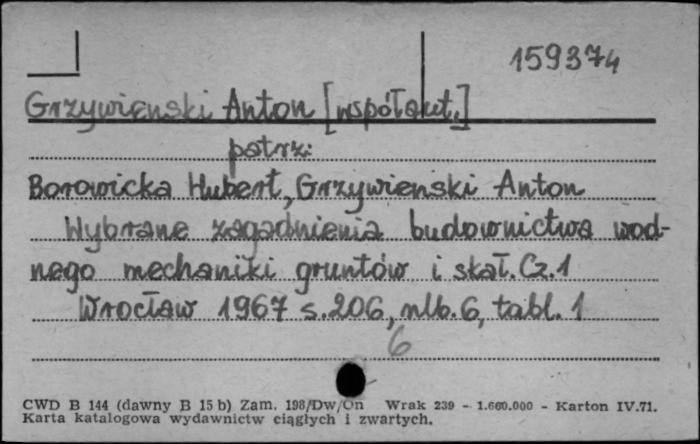 159374
Grzywieński Anton [współaut.]
patrz:
Borowicka Hubert, Grzywieński Anton
Wybrane zagadnienia budownictwa wod-
nego mechaniki gruntów i skał. Cz. 1
Wrocław 1967 s. 206, nlb. 6, tabl. 1
6
CWD B 144 (dawny B 15 b) Zam. 198/Dw/On Wrak 239 - 1.660.000 - Karton IV.71.
Karta katalogowa wydawnictw ciągłych i zwartych.